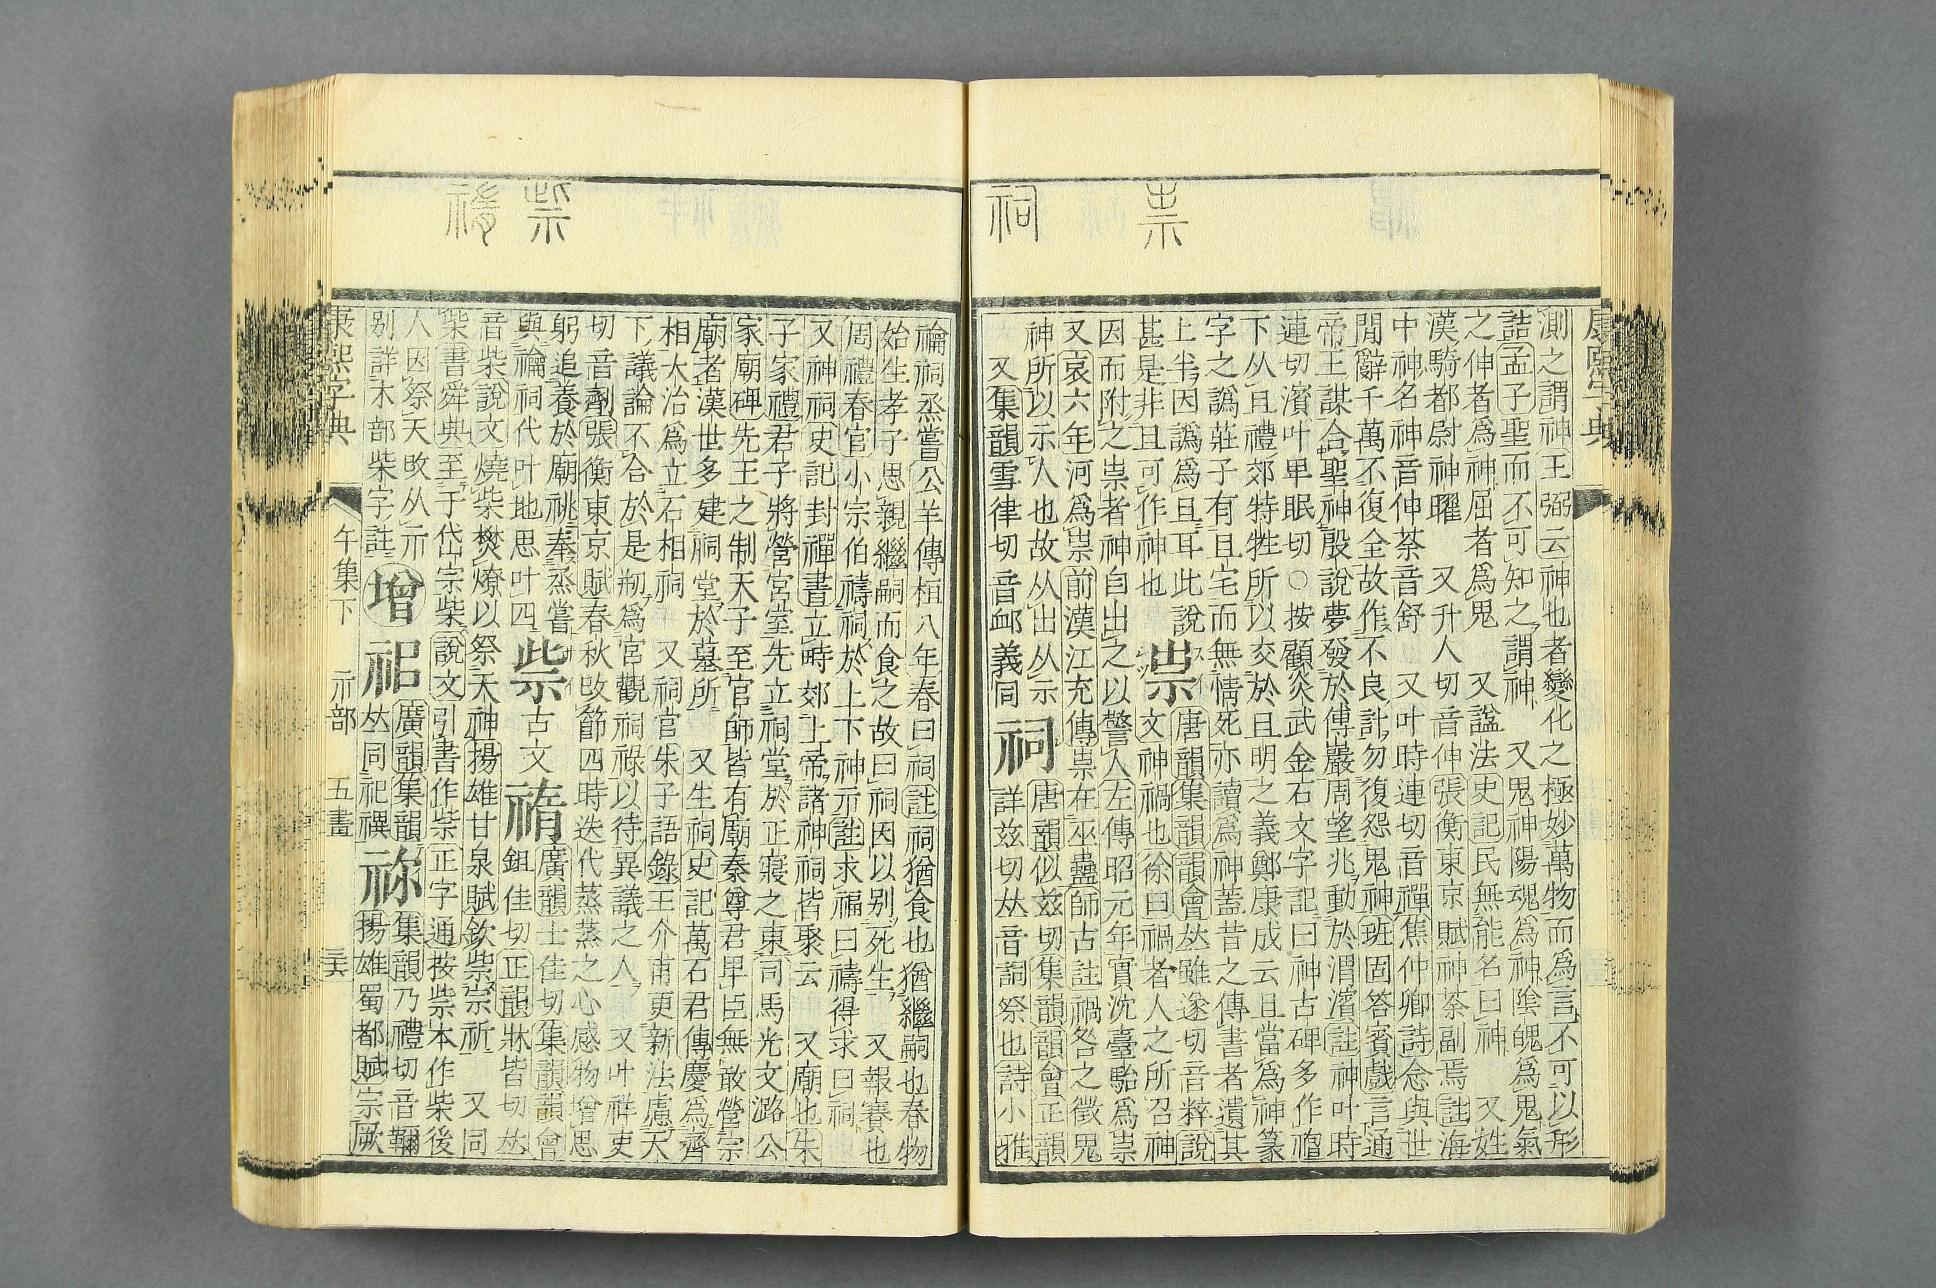 祟
祠
祡
禘
康熙字典
測之謂神王弼云神也者變化之極妙萬物而爲言不可以形
詰孟子聖而不可知之謂神 又鬼神陽魂爲神陰魄爲鬼氣
之伸者爲神屈者爲鬼 又諡法史記民無能名曰神 又姓
漢騎都尉神曜 又升人切音伸張衡東京賦神荼副焉註海
中神名神音伸荼音舒 又叶時連切音禪焦仲卿詩念與世
閒辭千萬不復全故作不良計勿復怨鬼神班固答賓戲言通
帝王謀合聖神殷說夢發於傅巖周望兆動於渭濱註神叶時
連切濱叶卑眠切○按顧炎武金石文字記曰神古碑多作䄠
下从旦禮郊特牲所以交於旦明之義鄭康成云旦當爲神篆
字之譌莊子有旦宅而無情死亦讀爲神蓋昔之傳書者遺其
上半因譌爲旦耳此說
甚是非旦可作神也
祟
唐韻集韻韻會𠀤雖遂切音粹說
文神禍也徐曰禍者人之所召神
因而附之祟者神自出之以警人左傳昭元年實沈臺駘爲祟
又哀六年河爲祟前漢江充傳祟在巫蠱師古註禍咎之徵鬼
神所以示人也故从出从示
又集韻雪律切音卹義同
祠
唐韻似兹切集韻韻會正韻
詳兹切𠀤音詞祭也詩小雅
禴祠烝嘗公羊傳桓八年春曰祠註祠猶食也猶繼嗣也春物
始生孝子思親繼嗣而食之故曰祠因以别死生 又報賽也
周禮春官小宗伯禱祠於上下神示註求福曰禱得求曰祠
又神祠史記封禪書立時郊上帝諸神祠皆聚云 又廟也朱
子家禮君子將營宮室先立祠堂於正寢之東司馬光文潞公
家廟碑先王之制天子至官師皆有廟秦尊君卑臣無敢營宗
廟者漢世多建祠堂於墓所 又生祠史記萬石君傳慶爲齊
相大治爲立石相祠 又祠官朱子語錄王介甫更新法慮天
下議論不合於是剏爲宮觀祠祿以待異議之人 又叶祥吏
切音劑張衡東京賦春秋改節四時迭代蒸蒸之心感物增思
躬追養於廟祧奉蒸嘗
與禴祠代叶地思叶四
祡
古文
𥙊
廣韻士佳切集韻韻會
鉏佳切正韻牀皆切𠀤
音柴說文燒柴焚燎以祭天神揚雄甘泉賦欽祡宗祈 又同
柴書舜典至于岱宗柴說文引書作祡正字通按祡本作柴後
人因祭天改从示
别詳木部柴字註
增
䄫
廣韻集韻
𠀤同祀禩
祢
集韻乃禮切音禰
揚雄蜀都賦宗厥
康熙字典 午集下 示部 五畫